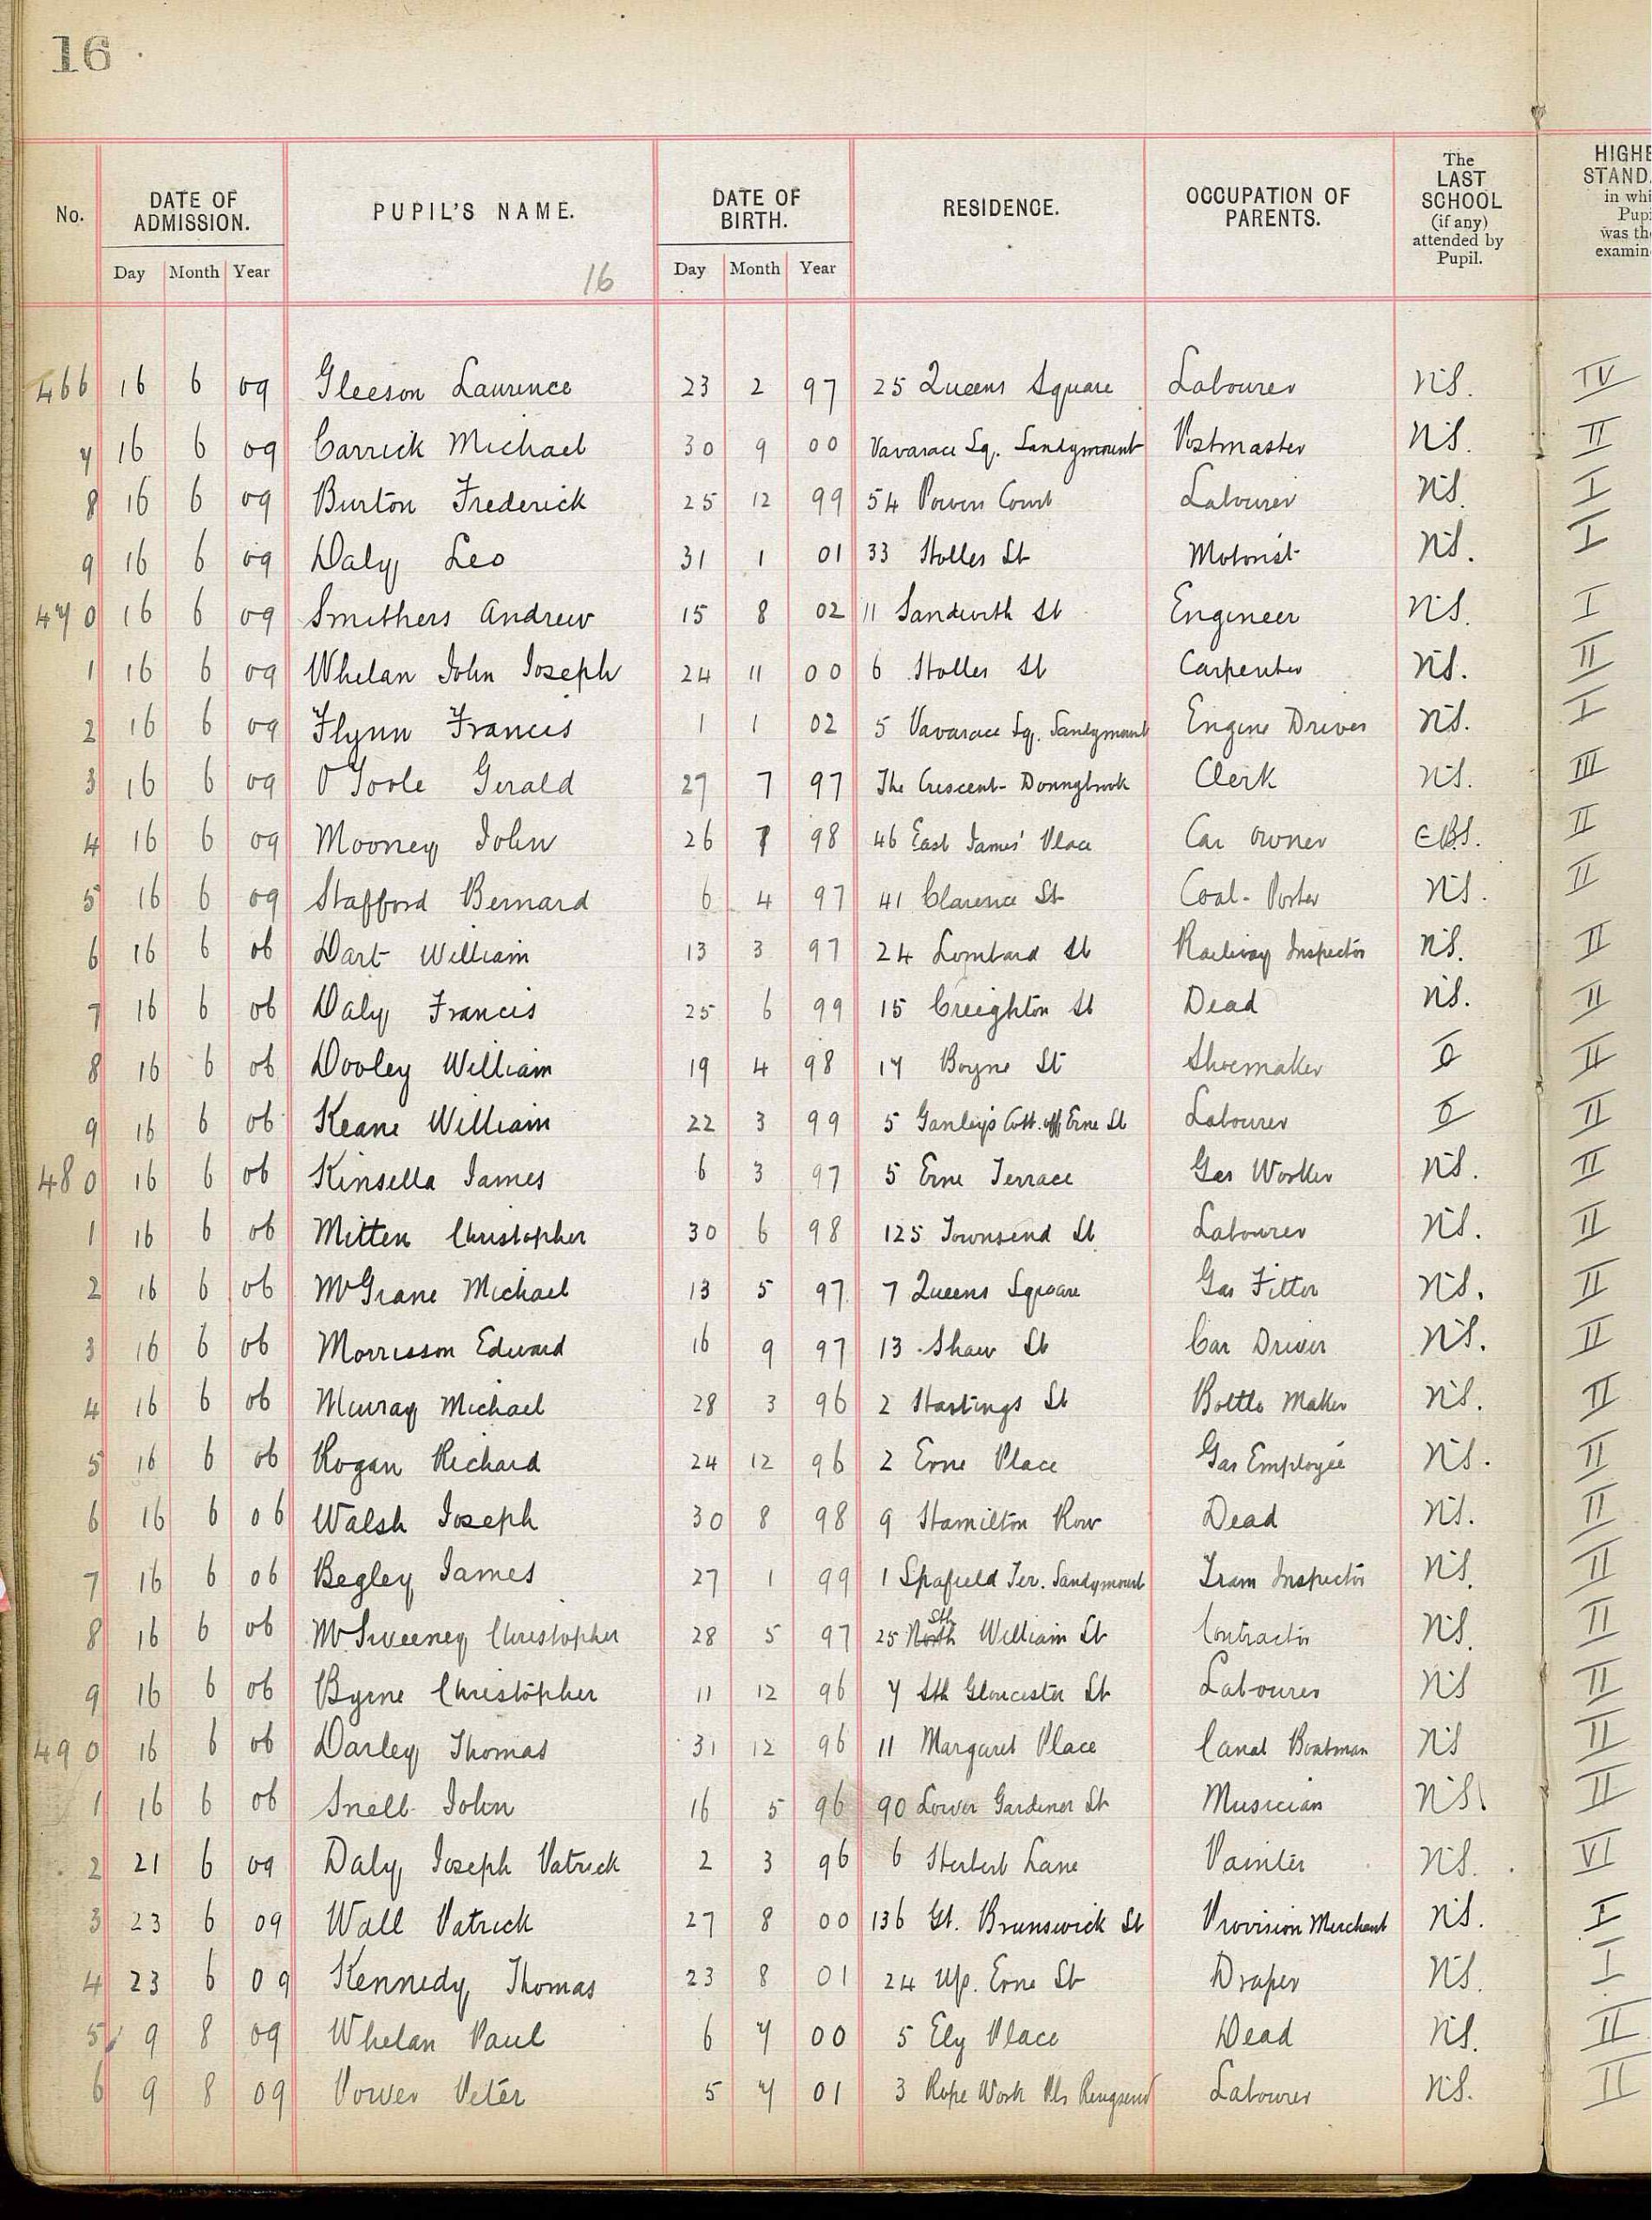 16
No. DATE OF ADMISSION. PUPIL'S NAME. DATE OF BIRTH. RESIDENCE. OCCUPATION OF PARENTS. The LAST SCHOOL (if any) attended by Pupil. HIGHE STAND. in whi Pupi was th examin
Day Month Year 16 Day Month Year
466 16 6 09 Gleeson Laurence 23 2 97 25 Queens Square Labourer N.S. IV
7 16 6 09 Carrick Michael 30 9 00 Vavasour Sq. Sandymount Postmaster N.S. II
8 16 6 09 Burton Frederick 25 12 99 54 Powers Court Labourer N.S. I
9 16 6 09 Daly Leo 31 1 01 33 Holles St Motorist N.S. I
470 16 6 09 Smithers Andrew 15 8 02 11 Sandwith St Engineer N.S. I
1 16 6 09 Whelan John Joseph 24 11 00 6 Holles St Carpenter N.S. II
2 16 6 09 Flynn Francis 1 1 02 5 Vavasour Sq. Sandymount Engine Driver N.S. I
3 16 6 09 O'Toole Gerald 27 7 97 The Crescent- Donnybrook Clerk N.S. III
4 16 6 09 Mooney John 26 7 98 46 East James' Place Car owner C.B.S. II
5 16 6 09 Stafford Bernard 6 4 97 41 Clarence St Coal-Porter N.S. II
6 16 6 06 Dart William 13 3 97 24 Lombard St Railway Inspector N.S. II
7 16 6 06 Daly Francis 25 6 99 15 Creighton St Dead N.S. II
8 16 6 06 Dooley William 19 4 98 17 Boyne St Shoemaker O II
9 16 6 06 Keane William 22 3 99 5 Ganley's Cott. off Erne St Labourer O II
480 16 6 06 Kinsella James 6 3 97 5 Erne Terrace Gas Worker N.S. II
1 16 6 06 Mitten Christopher 30 6 98 125 Townsend St Labourer N.S. II
2 16 6 06 McGrane Michael 13 5 97 7 Queens Square Gas Fitter N.S. II
3 16 6 06 Morrisson Edward 16 9 97 13 Shaw St Car Driver N.S. II
4 16 6 06 Murray Michael 28 3 96 2 Hastings St Bottle Maker N.S. II
5 16 6 06 Rogan Richard 24 12 96 2 Erne Place Gas Employée N.S. II
6 16 6 06 Walsh Joseph 30 8 98 9 Hamilton Row Dead N.S. II
7 16 6 06 Begley James 27 1 99 1 Spafield Ter. Sandymount Tram Inspector N.S. II
8 16 6 06 McSweeney Christopher 28 5 97 25 North Sth William St Contractor N.S. II
9 16 6 06 Byrne Christopher 11 12 96 7 Sth Gloucester St Labourer N.S II
490 16 6 06 Darley Thomas 31 12 96 11 Margaret Place Canal Boatman N.S II
1 16 6 06 Snell John 16 5 96 90 Lower Gardiner St Musician N.S. II
2 21 6 09 Daly Joseph Patrick 2 3 96 6 Herbert Lane Painter N.S. VI
3 23 6 09 Wall Patrick 27 8 00 136 Gt. Brunswick St Provision Merchant N.S. I
4 23 6 09 Kennedy Thomas 23 8 01 24 Up. Erne St Draper N.S. I
5 9 8 09 Whelan Paul 6 7 00 5 Ely Place Dead N.S. II
6 9 8 09 Power Peter 5 7 01 3 Rope Work Pls Ringsend Labourer N.S. II